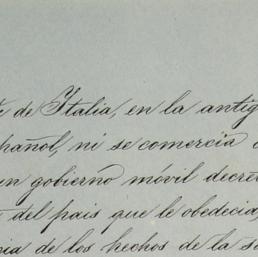 de Italia, en la antig
pañol, ni se comercia
un gobierno móvil decre
del pais que le obedecia,
ia de los hechos de la s